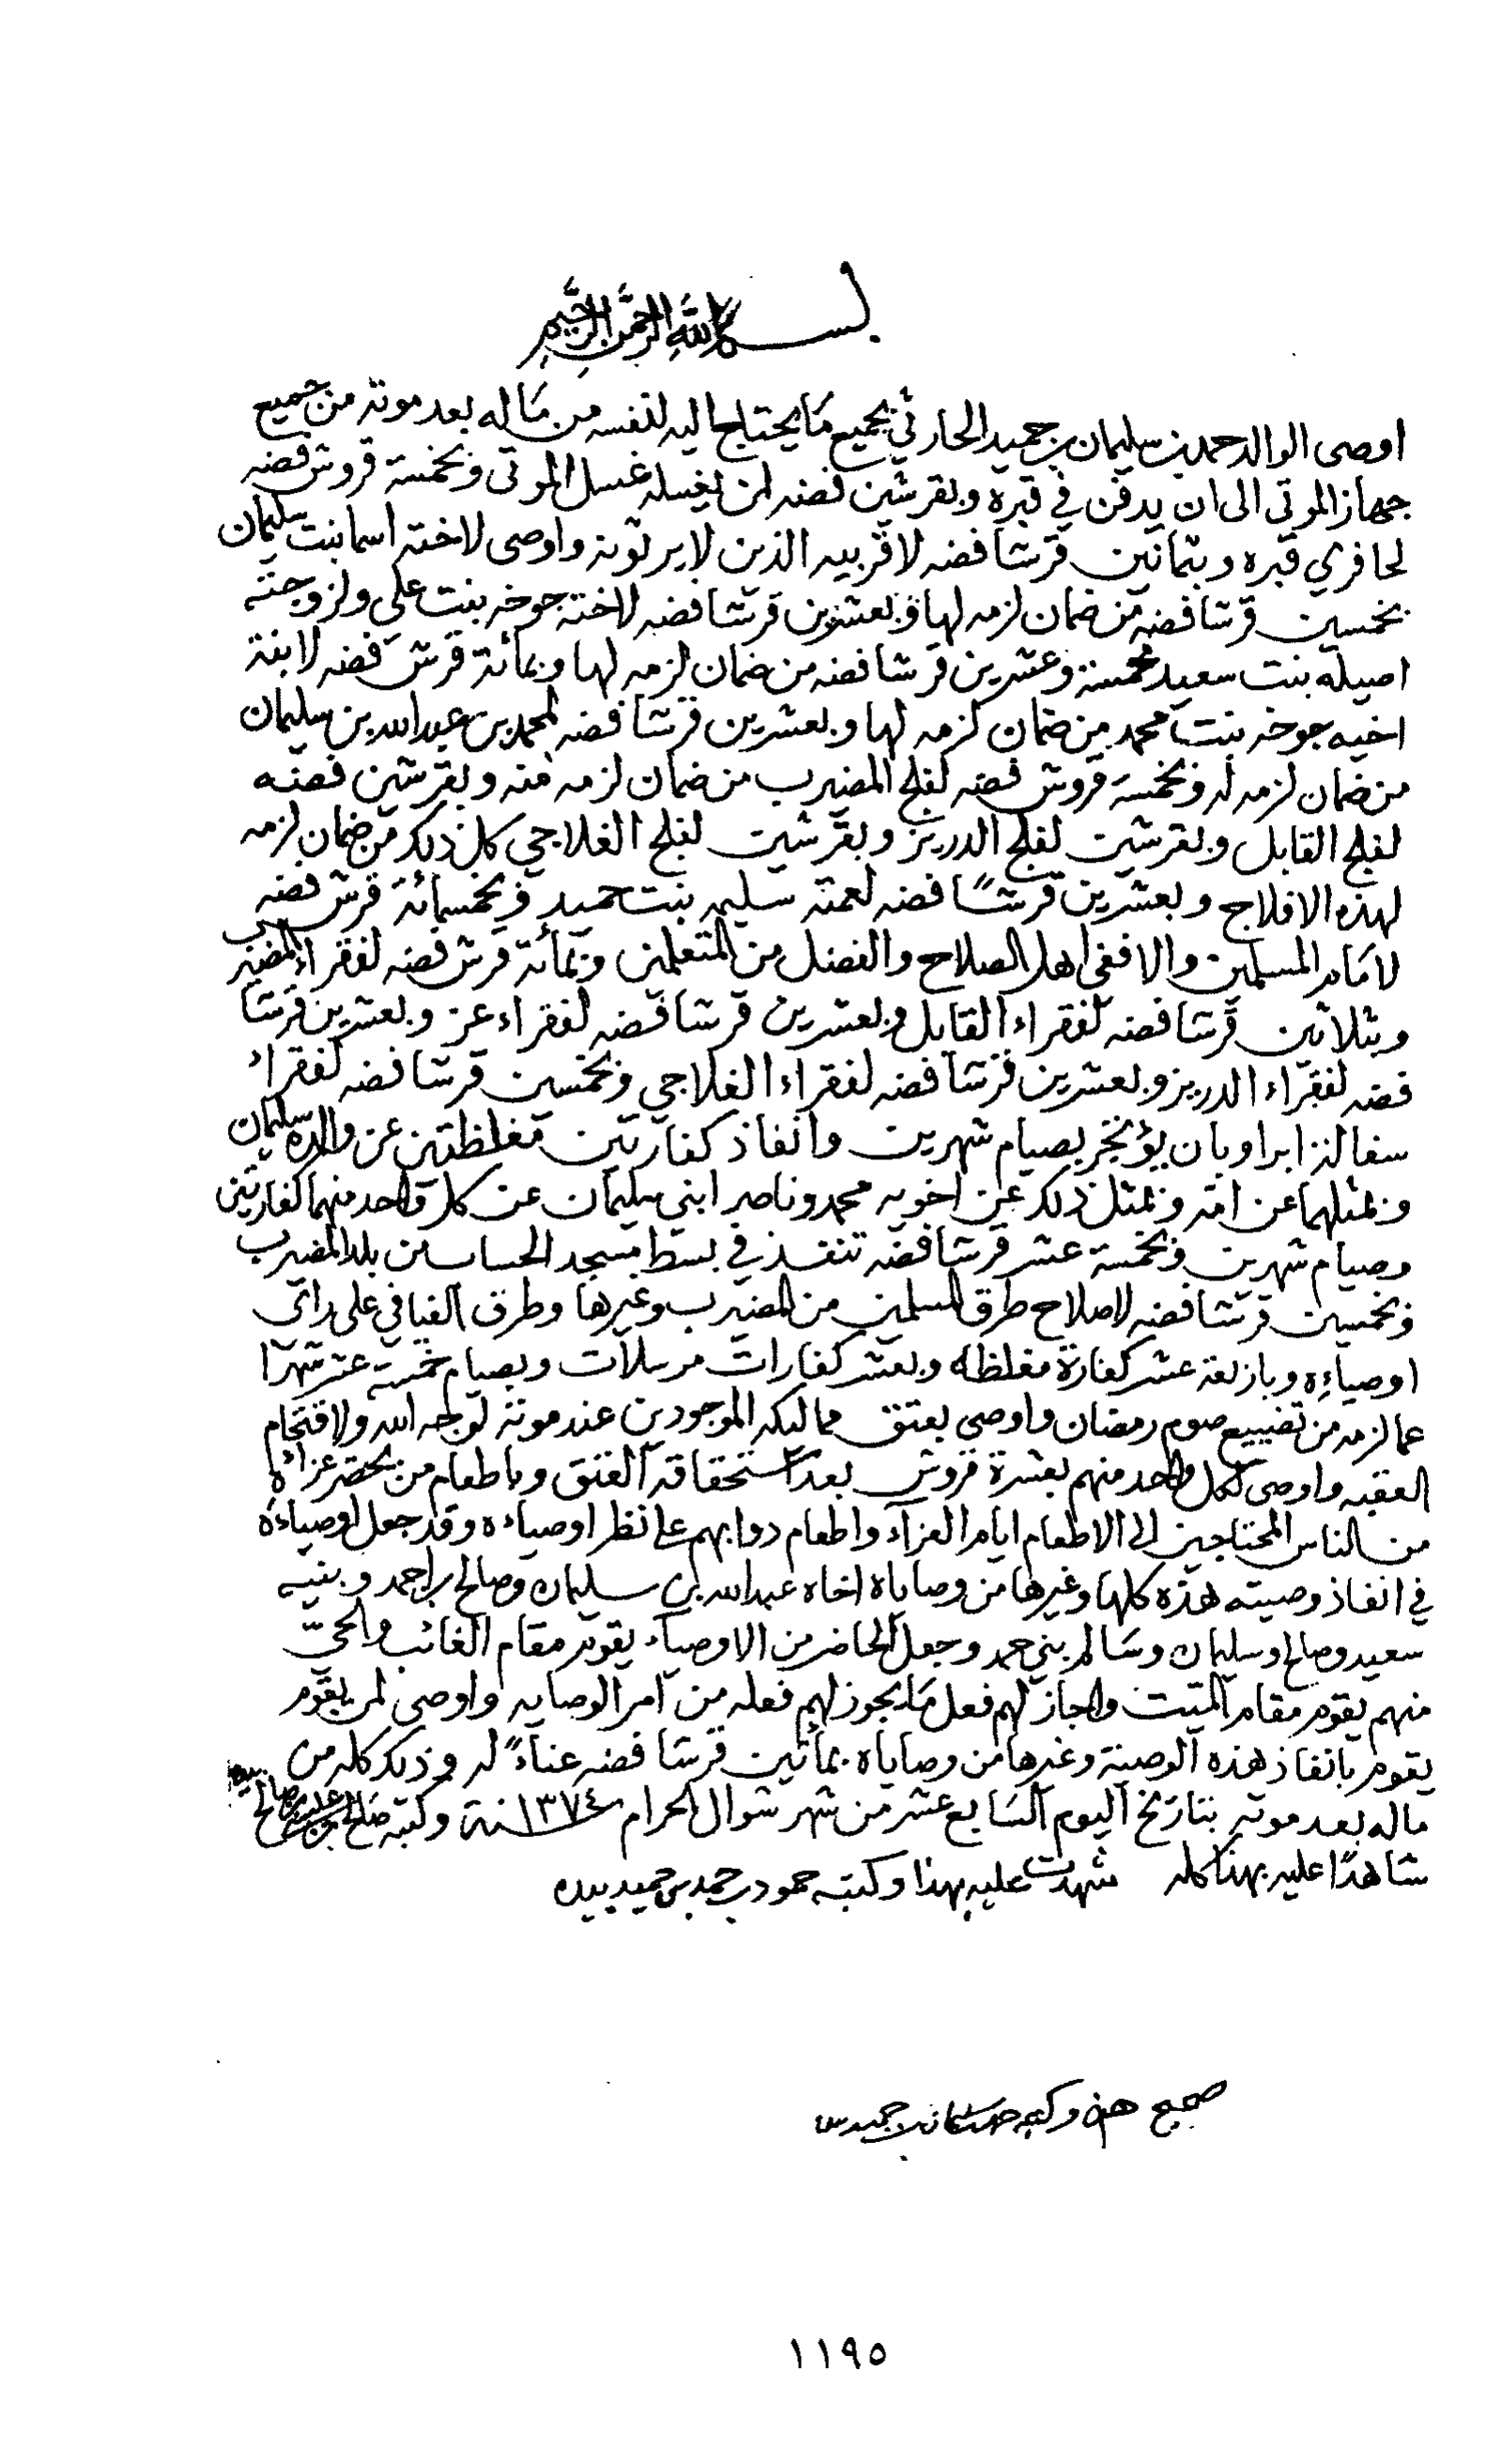 بسم الله الرحمن الرحيم
اوصى الوالد حمد بن سليمان بن حميد الحارثي بجميع ما يحتاج اليه لنفسه من ماله بعد موته من جميع
جهاز الموتى الى ان يدفن في قبره وبقرشين فضه لمن يغسله غسل الموتى وبخمسة قروش فضه
لحافري قبره وبثمانين قرشا فضه لاقربيه الذين لا يرثونه واوصى لاخته اسما بنت سليمان
بخمسين قرشا فضه من ضمان لزمه لها وبعشرين قرشا فضه لاخته جوخه بنت علي ولزوجته
اصيله بنت سعيد بخمسة وعشرين قرشا فضه من ضمان لزمه لها وبمائة قرش فضه لابنة
اخيه جوخه بنت محمد من ضمان لزمه لها وبعشرين قرشا فضه لمحمد بن عبدالله بن سليمان
من ضمان لزمه له وبخمسة قروش فضه لفلج المضيرب من ضمان لزمه منه وبقرشين فضه
لفلج القابل وبقرشين لفلج الدريز وبقرشين لفلج الغلاجي كل ذلك من ضمان لزمه
لهذه الافلاج وبعشرين قرشًا فضه لعمته سليمه بنت حميد وبخمسمائة قرش فضه
لامام المسلمين والا ففي اهل الصلاح والفضل من المتعلمين وبمائة قرش فضه لفقراء المضيرب
وبثلاثين قرشا فضه لفقراء القابل وبعشرين قرشا فضه لفقراء عز وبعشرين قرشا
فضه لفقراء الدريز وبعشرين قرشا فضه لفقراء الغلاجي وبخمسين قرشا فضه لفقراء
سفالة ابرا وبان يؤتجر بصيام شهرين وانفاذ كفارتين مغلظتين عن والده سليمان
وبمثلهما عن امه وبمثل ذلك عن اخويه محمد وناصر ابني سليمان عن كل واحد منهما كفارتين
وصيام شهرين وبخمسة عشر قرشا فضه تنفذ في بسط مسجد الحساسن بلد المضيرب
وبخمسين قرشا فضه لاصلاح طرق المسلمين من المضيرب وغيرها وطرق الفيافي على راي
اوصياءه وباربعة عشر كفارة مغلظه وبعشر كفارات مرسلات وبصيام خمسة عشر شهرا
عما لزمه من تضييع صوم رمضان واوصى بعتق مماليكه الموجودين عند موته لوجه الله ولاقتحام
العقبه واوصى لكل واحد منهم بعشرة قروش بعد استحقاقه العتق وباطعام من يحضر عزاءه
من الناس المحتاجين الى الاطعام ايام العزاء واطعام دوابهم على نظر اوصياءه وقد جعل اوصياءه
في انفاذ وصيته هذه كلها وغيرها من وصاياه اخاه عبدالله بن سليمان وصالح بن احمد وبنيه
سعيد وصالح وسليمان وسالم بني حمد وجعل الحاضر من الاوصياء يقوم مقام الغائب والحي
منهم يقوم مقام الميت واجاز لهم فعل ما يجوز لهم فعله من امر الوصايه واوصى لمن يقوم
يقوم بانفاذ هذه الوصية وغيرها من وصاياه بمائتين قرشا فضه عناءً له وذلك كله من
ماله بعد موته بتاريخ اليوم السابع عشر من شهر شوال الحرام سنة ١٣٧٤ وكتبه صالح بن علي بن صالح بيده
شاهدًا عليه بهذا كله شهدت عليه بهذا وكتبه حمود بن حمد بن حميد بيده
صحيح هذا وكتبه حمد بن سليمان بن حميد
١١٩٥